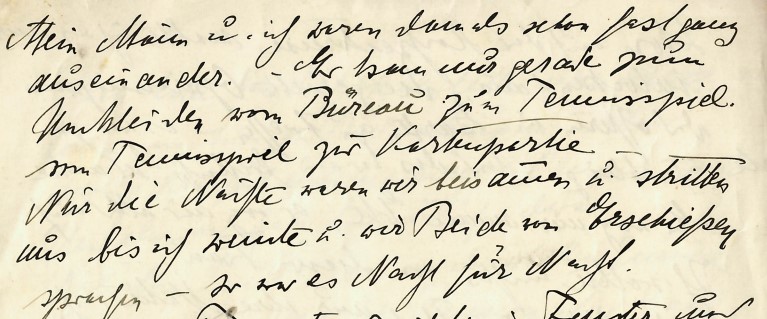 Mein Mann u. ich waren damals schon fast ganz
auseinander. – Er kam nur gerade zum
Umkleiden vom Büreau zum Tennisspiel.
vom Tennisspiel zur Kartenpartie –
Nur die Nächte waren wir beisamen u. stritten
uns bis ich weinte u. wir Beide von Erschießen
sprachen – so war es Nacht für Nacht.
Fenster und